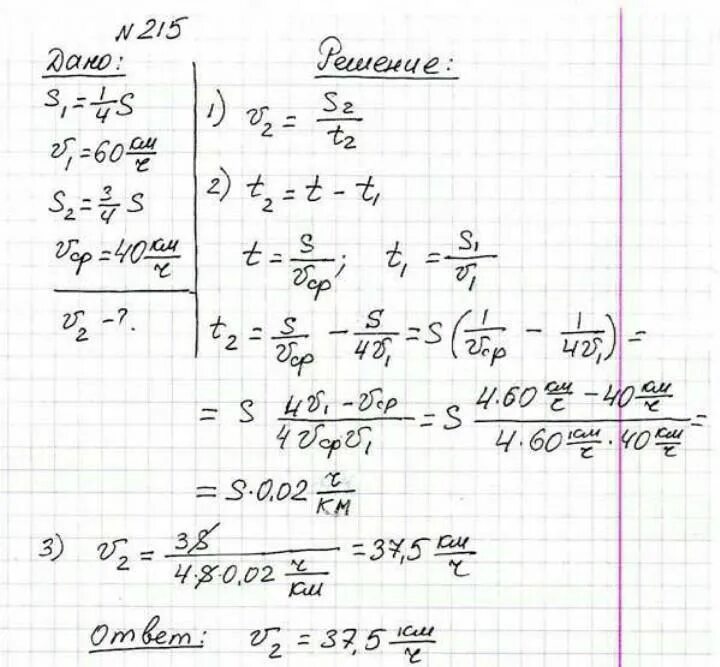 № 215
Дано:
S₁ = 1/4 S
v₁ = 60 км/ч
S₂ = 3/4 S
vср = 40 км/ч
v₂ - ?.
Решение:
1) v₂ = S₂/t₂
2) t₂ = t - t₁
t = S/vср; t₁ = S₁/v₁
t₂ = S/vср - S/4v₁ = S(1/vср - 1/4v₁) =
= S (4v₁ - vср)/(4vср v₁) = S (4·60 км/ч - 40 км/ч)/(4·60 км/ч · 40 км/ч) =
= S·0,02 ч/км
3) v₂ = 3S/(4·S·0,02 ч/км) = 37,5 км/ч
Ответ: v₂ = 37,5 км/ч